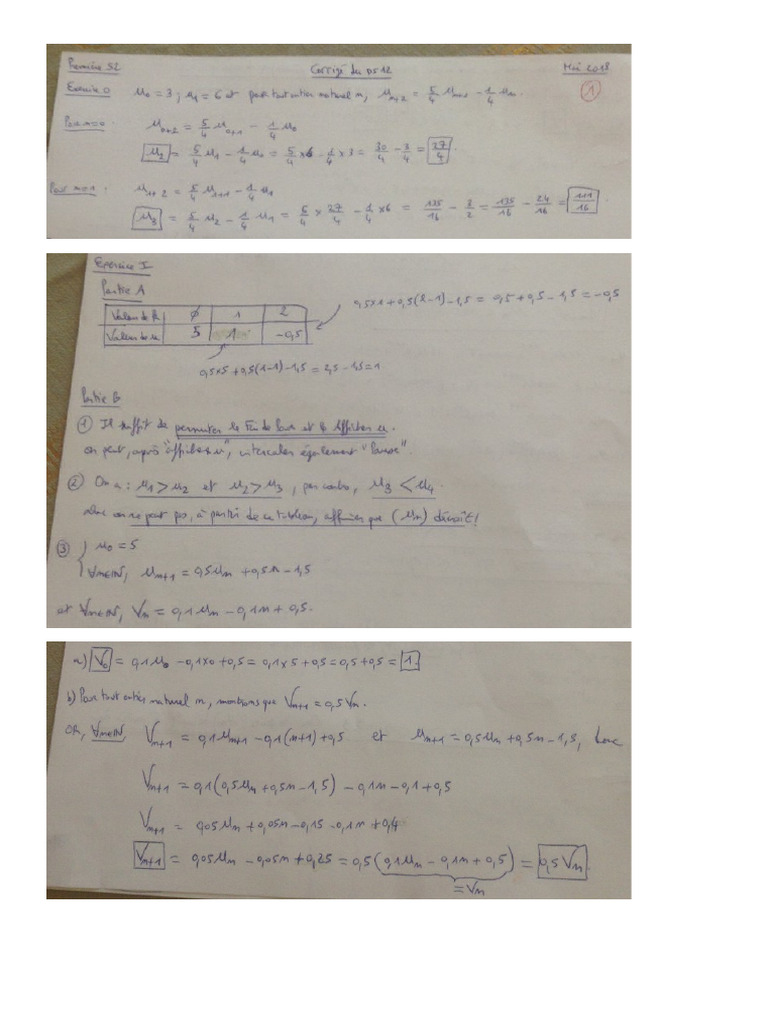 Première S2 Corrigé du DS 12 Mai 2018
Exercice 0 u₀ = 3 ; u₁ = 6 et pour tout entier naturel n, uₙ₊₂ = 5/4 uₙ₊₁ - 1/4 uₙ. 1
Pour n=0 : u₀₊₂ = 5/4 u₀₊₁ - 1/4 u₀
u₂ = 5/4 u₁ - 1/4 u₀ = 5/4 × 6 - 1/4 × 3 = 30/4 - 3/4 = 27/4.
Pour n=1 : u₁₊₂ = 5/4 u₁₊₁ - 1/4 u₁
u₃ = 5/4 u₂ - 1/4 u₁ = 5/4 × 27/4 - 1/4 × 6 = 135/16 - 3/2 = 135/16 - 24/16 = 111/16
Exercice I
Partie A
0,5×1 + 0,5(2-1) - 1,5 = 0,5 + 0,5 - 1,5 = -0,5
Valeur de k 0 1 2
Valeur de u 5 1 -0,5
0,5×5 + 0,5(1-1) - 1,5 = 2,5 - 1,5 = 1.
Partie B
① Il suffit de permuter le Fin de Pour et le Afficher u.
on peut, après "afficher u", intercaler également "Pause".
② On a : u₁ > u₂ et u₂ > u₃, par contre, u₃ < u₄.
donc on ne peut pas, à partir de ce tableau, affirmer que (uₙ) décroît !
③ { u₀ = 5
∀n∈ℕ, uₙ₊₁ = 0,5uₙ + 0,5n - 1,5
et ∀n∈ℕ, Vₙ = 0,1uₙ - 0,1n + 0,5.
a) V₀ = 0,1u₀ - 0,1×0 + 0,5 = 0,1×5 + 0,5 = 0,5 + 0,5 = 1.
b) Pour tout entier naturel n, montrons que Vₙ₊₁ = 0,5Vₙ.
OR, ∀n∈ℕ, Vₙ₊₁ = 0,1uₙ₊₁ - 0,1(n+1) + 0,5 et uₙ₊₁ = 0,5uₙ + 0,5n - 1,5, donc
Vₙ₊₁ = 0,1(0,5uₙ + 0,5n - 1,5) - 0,1n - 0,1 + 0,5
Vₙ₊₁ = 0,05uₙ + 0,05n - 0,15 - 0,1n + 0,4
Vₙ₊₁ = 0,05uₙ - 0,05n + 0,25 = 0,5(0,1uₙ - 0,1n + 0,5) = 0,5Vₙ.
= Vₙ